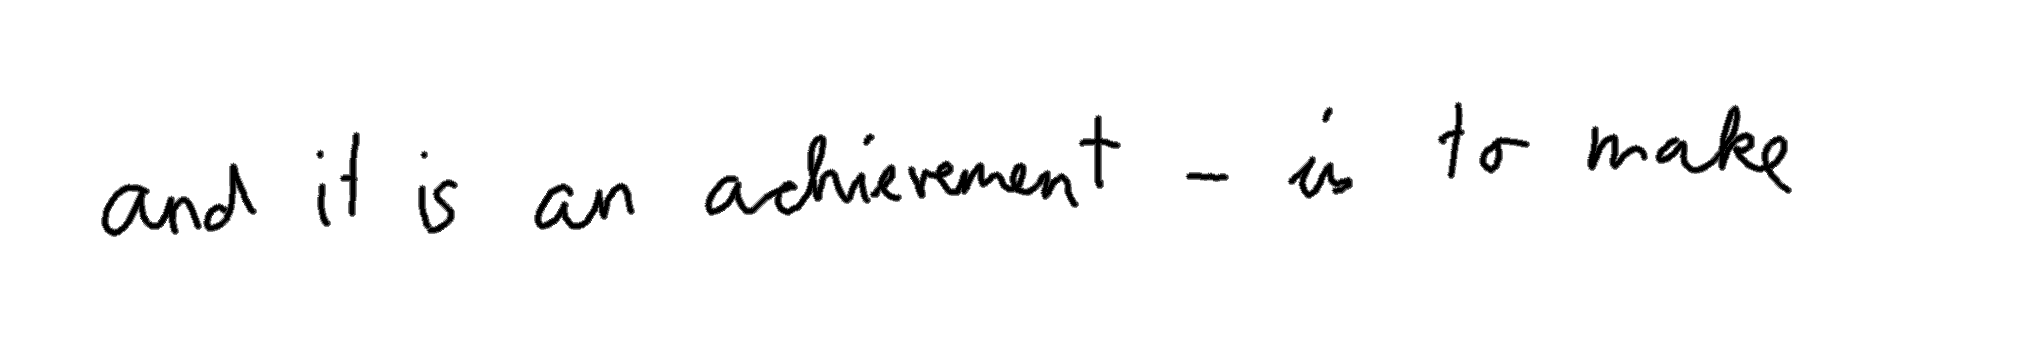 and it is an achievement - is to make